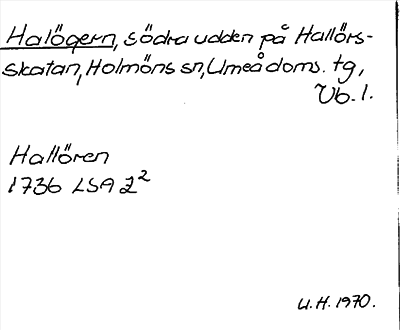 Halögern, södra udden på Hallörs-
skatan, Holmöns sn, Umeå doms. tg,
Vb. l.
Hallören
1736 LSA Z²
U.H. 1970.